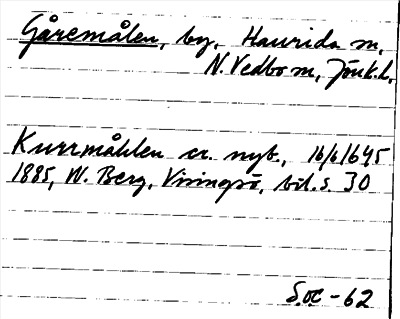 Gåremålen, by, Haurida sn,
N. Vedbo sn, Jönk. l.
Kurrmåhlen cr. nyb., 16/6 1645
1885, W. Berg, Visingsö, bil. s. 30
S.OC - 62